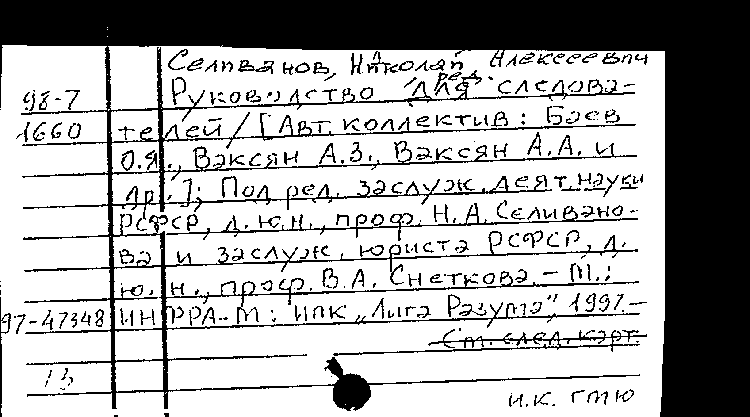 Селиванов, Николай Алексеевич
ред.
98-7 Руководство для следова-
1660 телей / [Авт. коллектив: Баев
О.Я., Ваксян А.З., Ваксян А.А. и
др.]; Под ред. заслуж. деят. науки
РСФСР, д.ю.н., проф. Н.А. Селивано-
ва и заслуж. юриста РСФСР, д.
ю.н., проф. В.А. Снеткова. - М.:
97-47348 ИНФРА-М: ИПК „Лига Разума", 1997.-
См. след. карт.
13
н.к. гтю